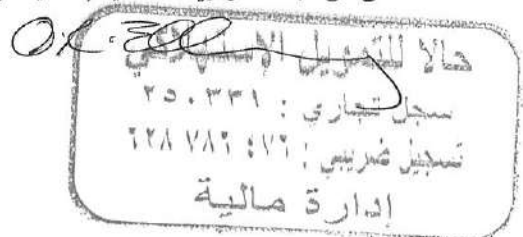 حالا للتمويل الإستهلاكي
سجل تجاري : ٢٥٠٣٣٩
تسجيل ضريبي :
إدارة مالية